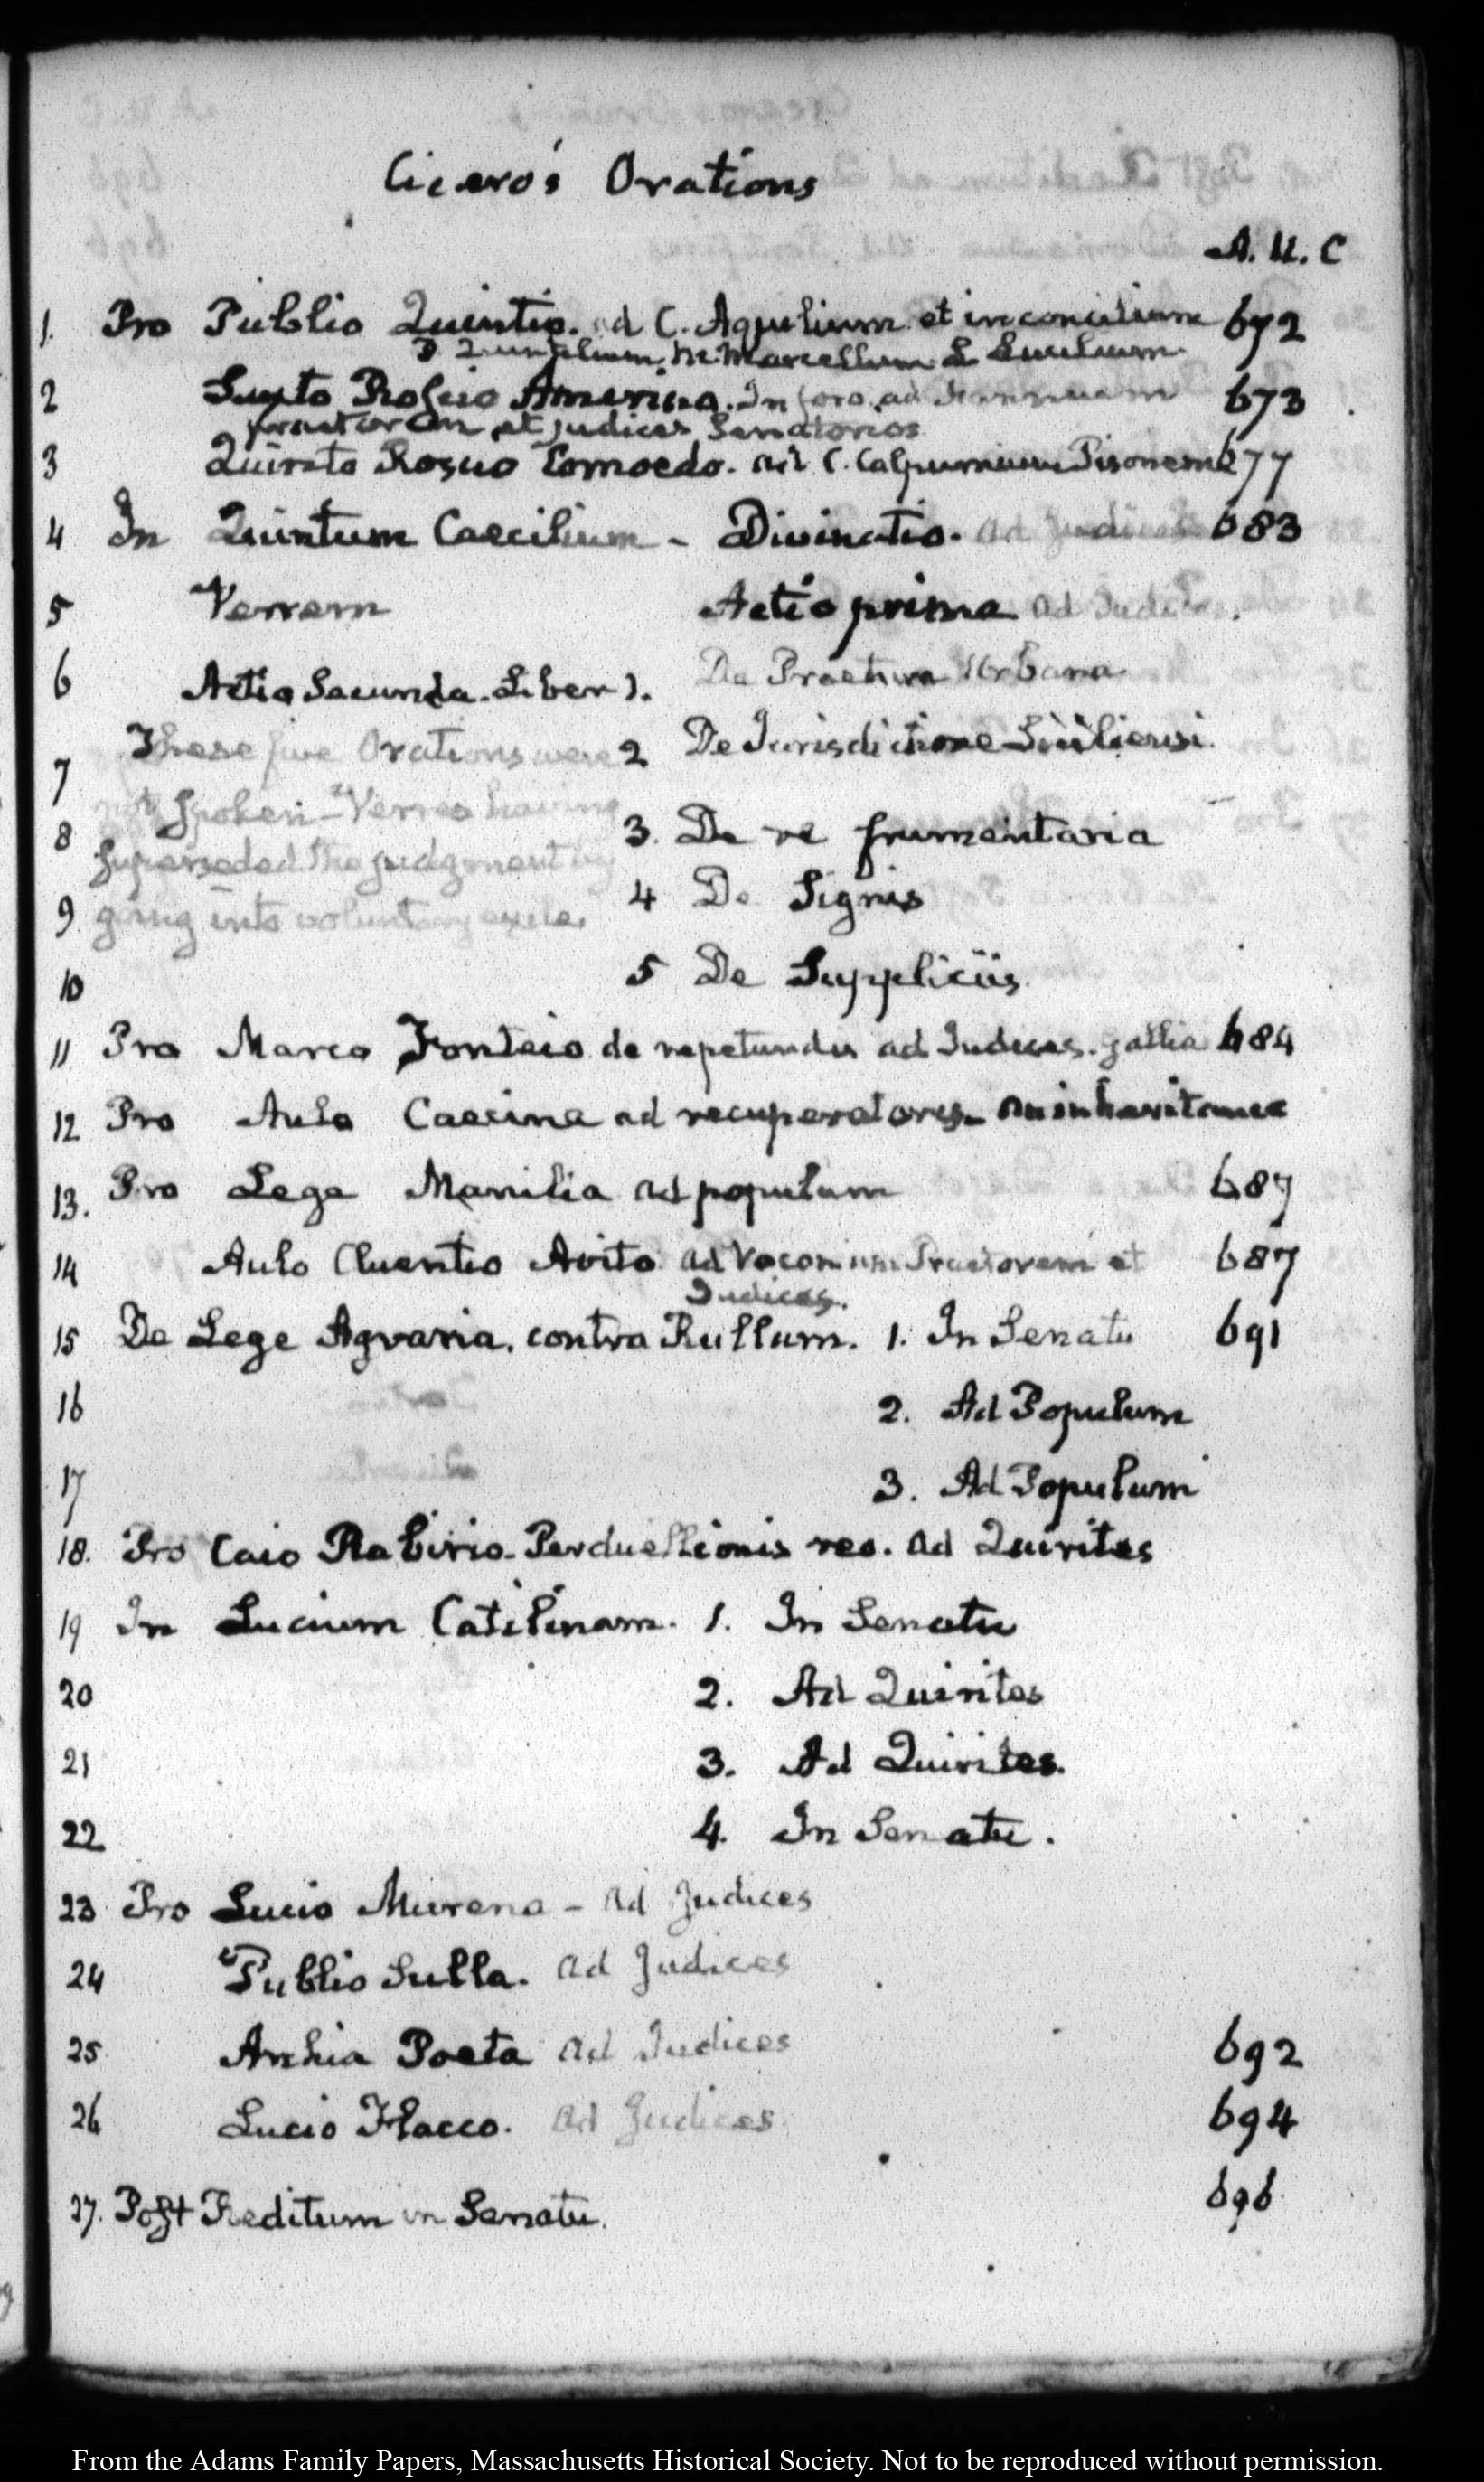 Cicero's Orations
A. U. C
1. Pro Publio Quintio. ad C. Aquilium et in concilium 672
P Quintilium. M. Marcellum L Lucilium
2 Sexto Roscio Amerino. In foro. ad Fannium 673
praetorem et judices Senatorios
3 Quinto Roscio Comoedo. ad C. Calpurnium Pisonem 677
4 In Quintum Caecilium - Divinatio. ad Judices 683
5 Verrem Actio prima ad Judices.
6 Actio Secunda. Liber 1. De Praetura Urbana
7 These five Orations were 2 De Jurisdictione Siciliensi.
not Spoken - Verres having
8 3. De re frumentaria
superseded the judgment by
9 going into voluntary exile. 4 De Signis
10 5 De Suppliciis
11 Pro Marco Fonteio de repetundis ad Judices. Gallia 684
12 Pro Aulo Caecina ad recuperatores - an inheritance
13. Pro Lege Manilia ad populum 687
14 Aulo Cluentio Avito ad Voconium Praetorem et 687
Judices.
15 De Lege Agraria. contra Rullum. 1. In Senatu 691
16 2. Ad Populum
17 3. Ad Populum
18. Pro Caio Rabirio. Perduellionis reo. ad Quirites
19 In Lucium Catilinam. 1. In Senatu
20 2. Ad Quirites
21 3. Ad Quirites.
22 4. In Senatu.
23 Pro Lucio Murena - ad Judices
24 Publio Sulla. ad Judices
25 Archia Poeta ad Judices 692
26 Lucio Flacco. ad Judices. 694
27. Post Reditum in Senatu. 696
From the Adams Family Papers, Massachusetts Historical Society. Not to be reproduced without permission.